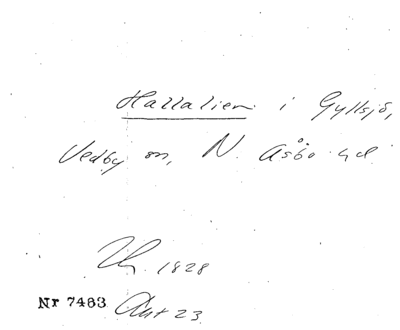 Hallalien i Gyllsjö,
Vedby sn, N. Åsbo hd
1828
Nr 7463 Akt 23